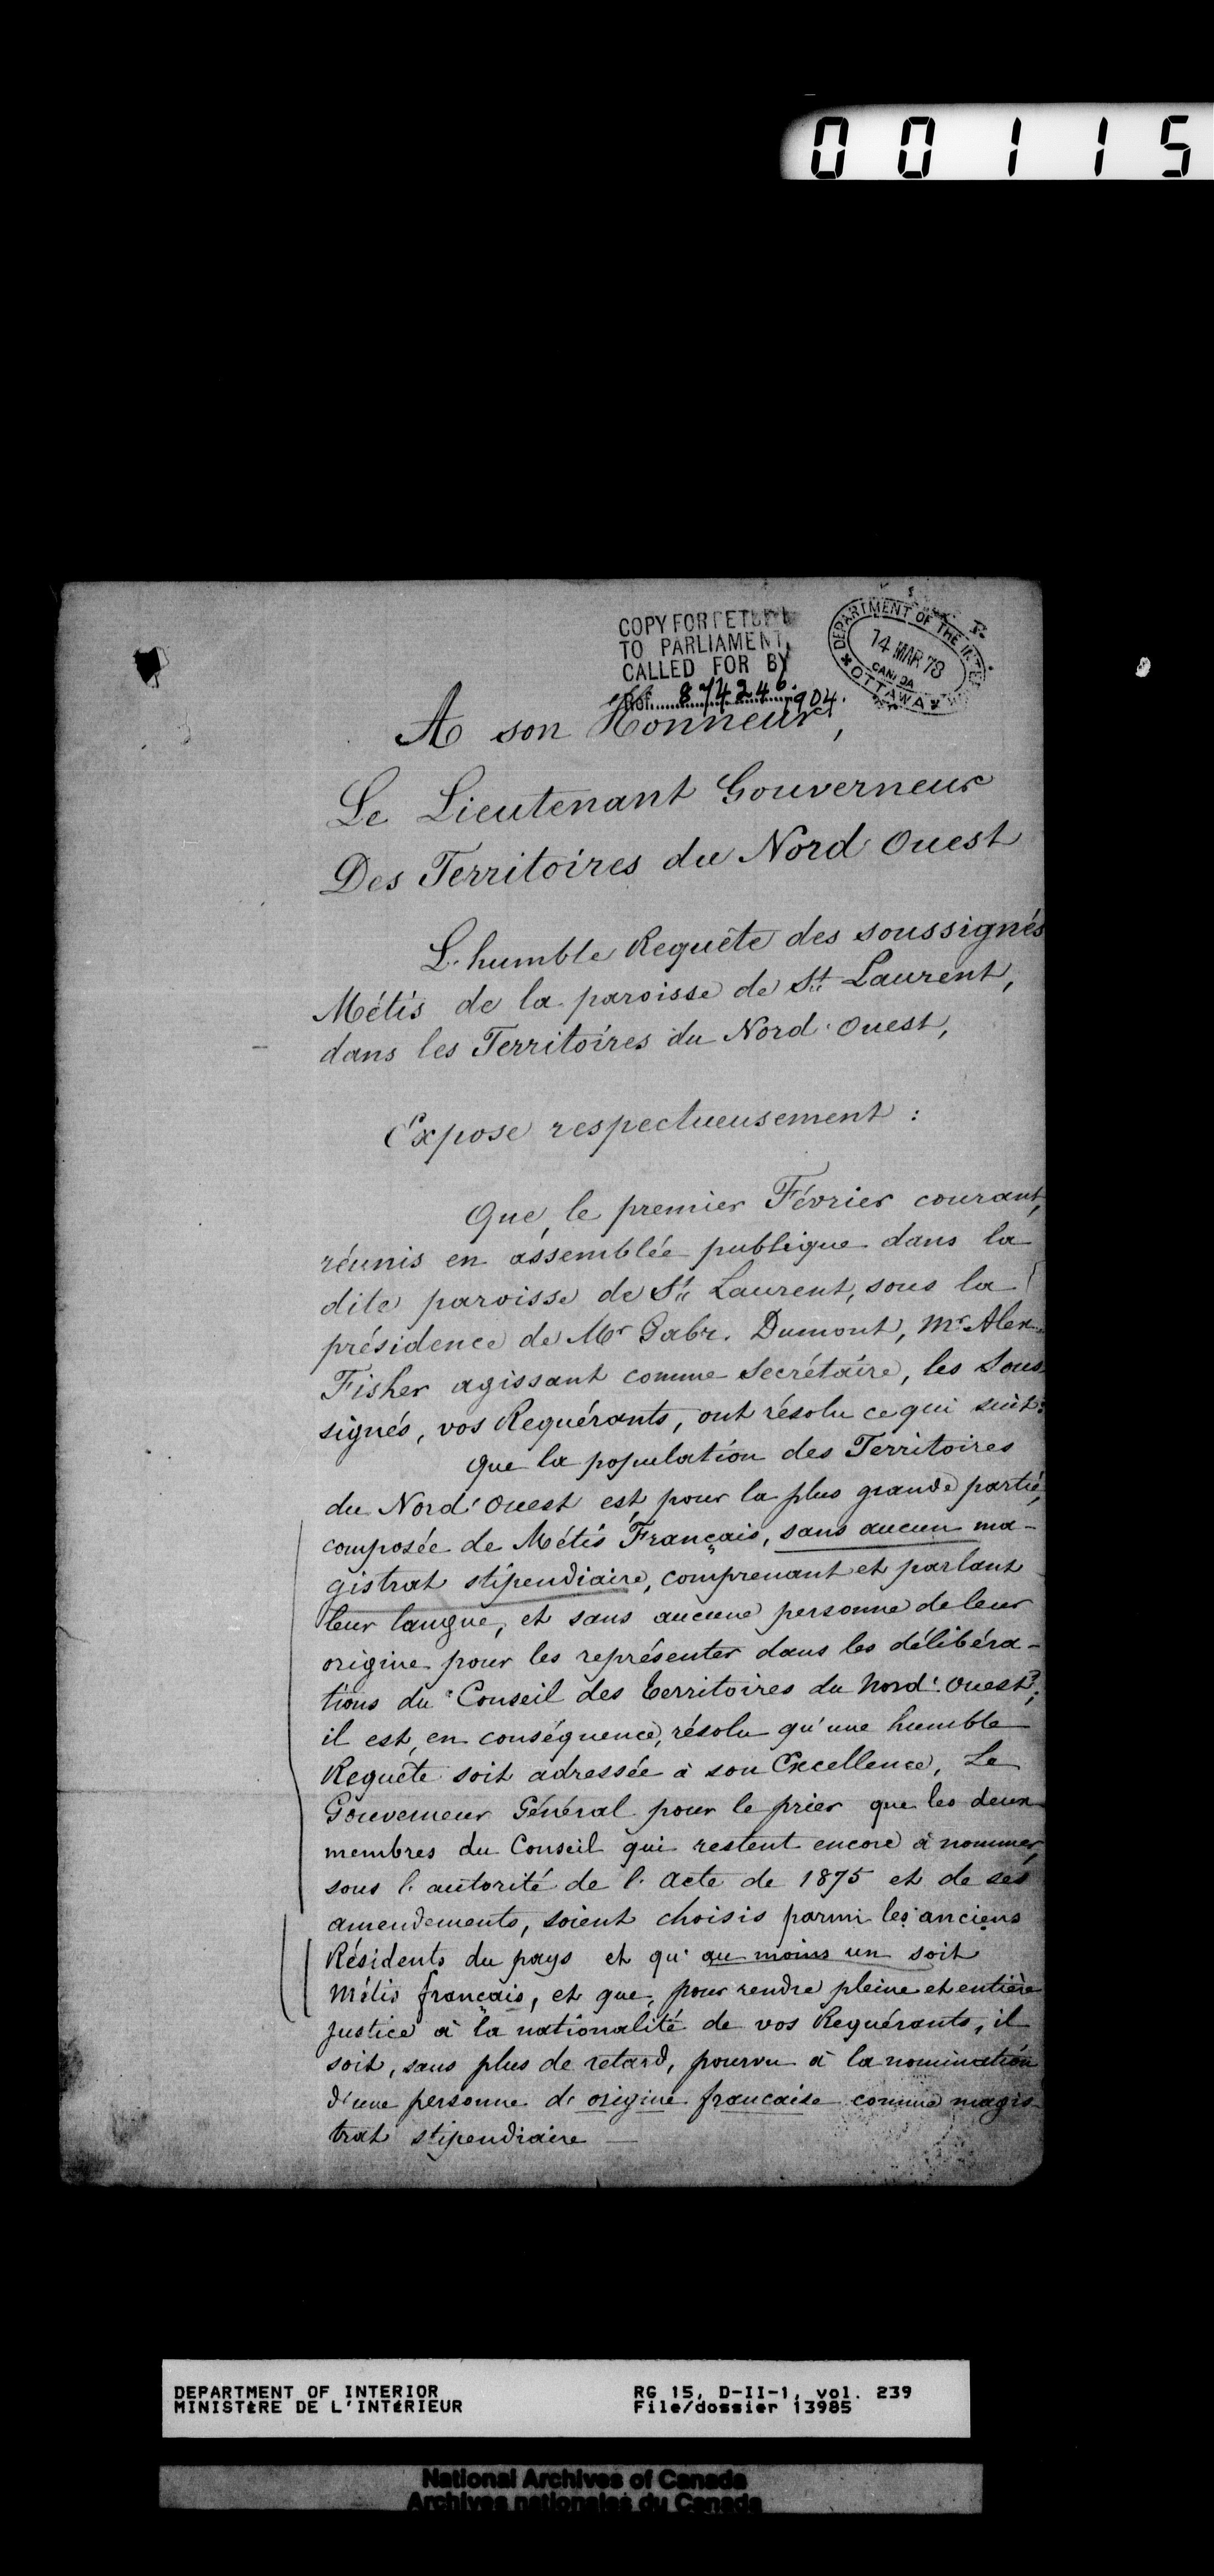 00115
COPY FOR RETURN
TO PARLIAMENT,
CALLED FOR BY
Ref. 874246. 904.
DEPARTMENT OF THE INTE
14 MAR 78
CANADA
OTTAWA
A son Honneur,
Le Lieutenant Gouverneur
Des Territoires du Nord Ouest
L'humble Requête des soussignés
Métis de la paroisse de St Laurent,
dans les Territoires du Nord-Ouest,
Expose respectueusement :
Que, le premier Février courant,
réunis en assemblée publique dans la
dite paroisse de St Laurent, sous la
présidence de Mr Gabr. Dumont, Mr Alex.
Fisher agissant comme Secrétaire, les Sous
signés, vos Requérants, ont résolu ce qui suit:
Que la population des Territoires
du Nord'Ouest est, pour la plus grande partie,
composée de Métis Français, sans aucun ma-
gistrat stipendiaire, comprenant et parlant
leur langue, et sans aucune personne de leur
origine pour les représenter dans les délibéra-
tions du Conseil des Territoires du Nord'Ouest;
il est, en conséquence, résolu qu'une humble
Requête soit adressée à son Excellence, Le
Gouverneur Général pour le prier que les deux
membres du Conseil qui restent encore à nommer,
sous l'autorité de l'Acte de 1875 et de ses
amendements, soient choisis parmi les anciens
Résidents du pays et qu'au moins un soit
Métis français, et que, pour rendre pleine et entière
justice à la nationalité de vos Requérants, il
soit, sans plus de retard, pourvu à la nomination
d'une personne d'origine francaise comme magis-
trat stipendiaire —
DEPARTMENT OF INTERIOR
MINISTÈRE DE L'INTÉRIEUR
RG 15, D-II-1, vol. 239
File/dossier 13985
National Archives of Canada
Archives nationales du Canada